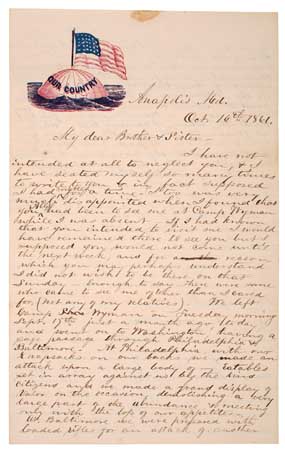 OUR COUNTRY
Anapolis Md.
Oct. 16th 1861.
My dear Brother & Sister—
I have not
intended at all to neglect you & I
have seated myself so many times
to write to you & in what supposed
I had time. I too was very
much disappointed when I found that
you had been to see me at Camp Wyman
while I was absent. If I had known
that you intended to visit me I would
have remained there to see you but I
supposed you would not come until
the next week and for reason
which you may perhaps understand
I did not wish to be there on that
Sunday — enough to say there were some
who came to see me other than I cared
for (not any of my relatives). We left
Camp Wyman on Tuesday morning
Sept. 17th just a month ago today
and went on to Washington having a
passage through Philadelphia &
Baltimore. In Philadelphia with our
Knapsacks on our backs we made an
attack upon a large body of eatables
set in array against us by the
citizens and we made a grand display of
valor on the occasion, demolishing a very
large part of the abundance & meeting
only with the loss of our appetites.
At Baltimore we were prepared with
loaded rifles for an attack of another